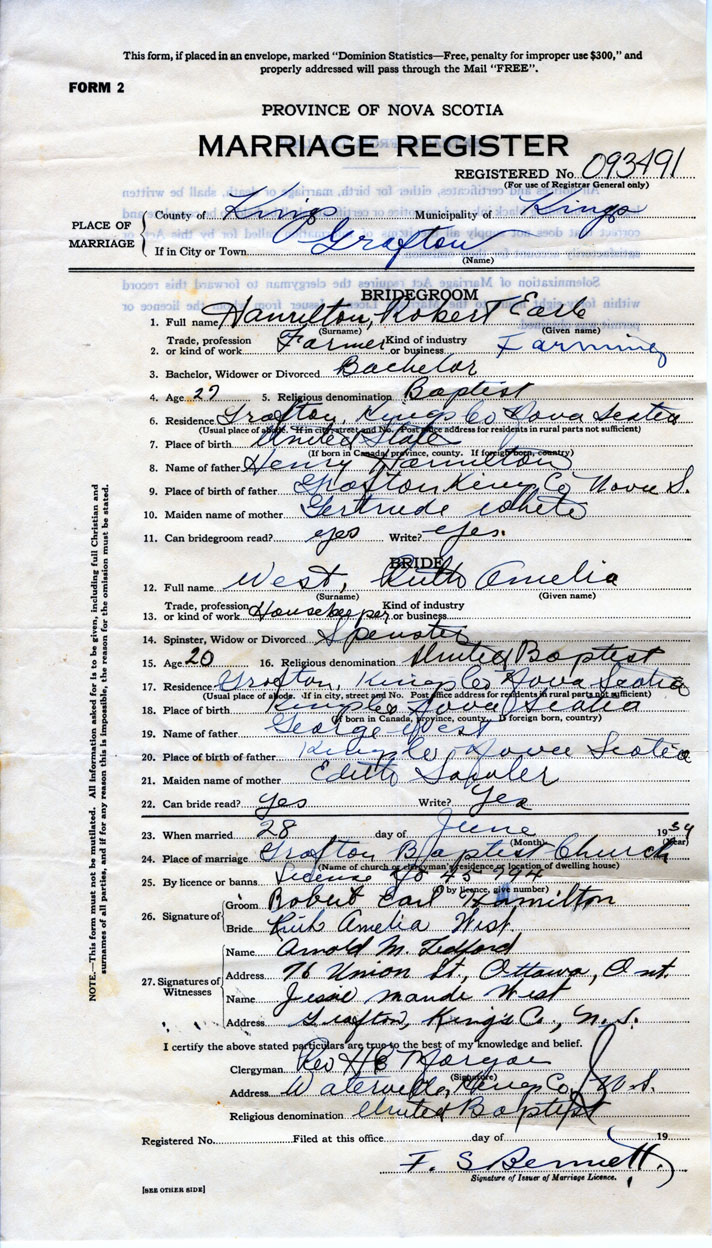 This form, if placed in an envelope, marked "Dominion Statistics—Free, penalty for improper use $300," and
properly addressed will pass through the Mail "FREE".
FORM 2
PROVINCE OF NOVA SCOTIA
MARRIAGE REGISTER
REGISTERED No. 093491
(For use of Registrar General only)
PLACE OF MARRIAGE
County of Kings Municipality of Kings
If in City or Town Grafton
(Name)
BRIDEGROOM
1. Full name Hamilton, Robert Earle
(Surname) (Given name)
2. Trade, profession or kind of work Farmer Kind of industry or business Farming
3. Bachelor, Widower or Divorced Bachelor
4. Age 27 5. Religious denomination Baptist
6. Residence Grafton, Kings Co Nova Scotia
(Usual place of abode. If in city, street and No. Post office address for residents in rural parts not sufficient)
7. Place of birth United States
(If born in Canada, province, county. If foreign born, country)
8. Name of father Henry Hamilton
9. Place of birth of father Grafton Kings Co Nova S.
10. Maiden name of mother Gertrude White
11. Can bridegroom read? yes Write? yes.
BRIDE
12. Full name West, Ruth Amelia
(Surname) (Given name)
13. Trade, profession or kind of work Housekeeper Kind of industry or business
14. Spinster, Widow or Divorced Spinster
15. Age 20 16. Religious denomination United Baptist
17. Residence Grafton, Kings Co Nova Scotia
(Usual place of abode. If in city, street and No. Post office address for residents in rural parts not sufficient)
18. Place of birth Kings Co Nova Scotia
(If born in Canada, province, county. If foreign born, country)
19. Name of father George West
20. Place of birth of father Kings Co Nova Scotia
21. Maiden name of mother Edith
22. Can bride read? Yes Write? Yes
23. When married 28 day of June 19 34
(Month) (Year)
24. Place of marriage Grafton Baptist Church
(Name of church or clergyman's residence or location of dwelling house)
25. By licence or banns License No 45
(If by licence, give number)
26. Signature of
Groom Robert Earl Hamilton
Bride Ruth Amelia West
27. Signatures of Witnesses
Name Arnold M. Tedford
Address 76 Union St., Ottawa, Ont.
Name Jessie Maude West
Address Grafton, King's Co., N.S.
I certify the above stated particulars are true to the best of my knowledge and belief.
Clergyman Rev H E Morgan
(Signature)
Address Waterville, Kings Co, N.S.
Religious denomination United Baptist
Registered No. Filed at this office day of 19
F. S Bennett
Signature of Issuer of Marriage Licence.
[SEE OTHER SIDE]
NOTE.—This form must not be mutilated. All information asked for is to be given, including full Christian and
surnames of all parties, and if for any reason this is impossible, the reason for the omission must be stated.